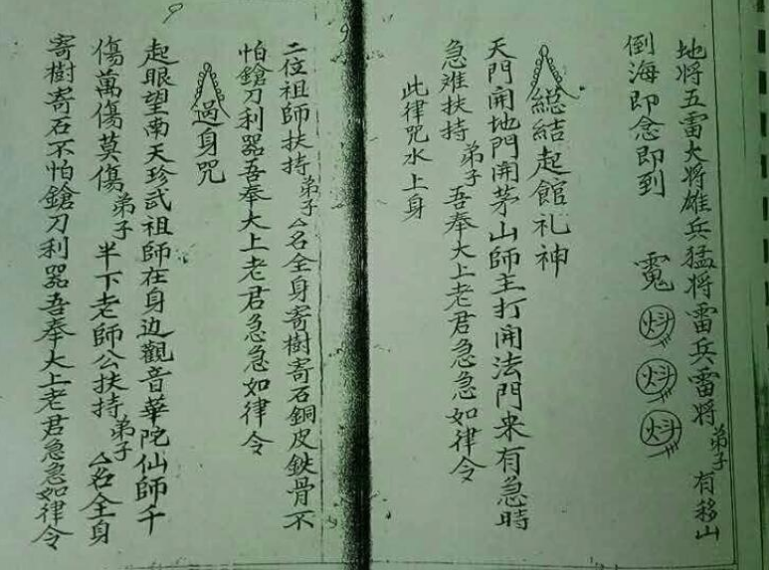 地将五雷大将雄兵猛将雷兵雷将弟子有移山
倒海即念即到 魒
總結起館礼神
天門開地門開茅山師主打開法門来有急時
急难扶持弟子吾奉大上老君急急如律令
此律咒水上身
二位祖師扶持弟子厶名全身寄樹寄石銅皮鉄骨不
怕鎗刀利器吾奉大上老君急急如律令
過身咒
起眼望南天珍武祖師在身边觀音華陀仙師千
傷萬傷莫傷弟子半下老師公扶持弟子厶名全身
寄樹寄石不怕鎗刀利器吾奉大上老君急急如律令